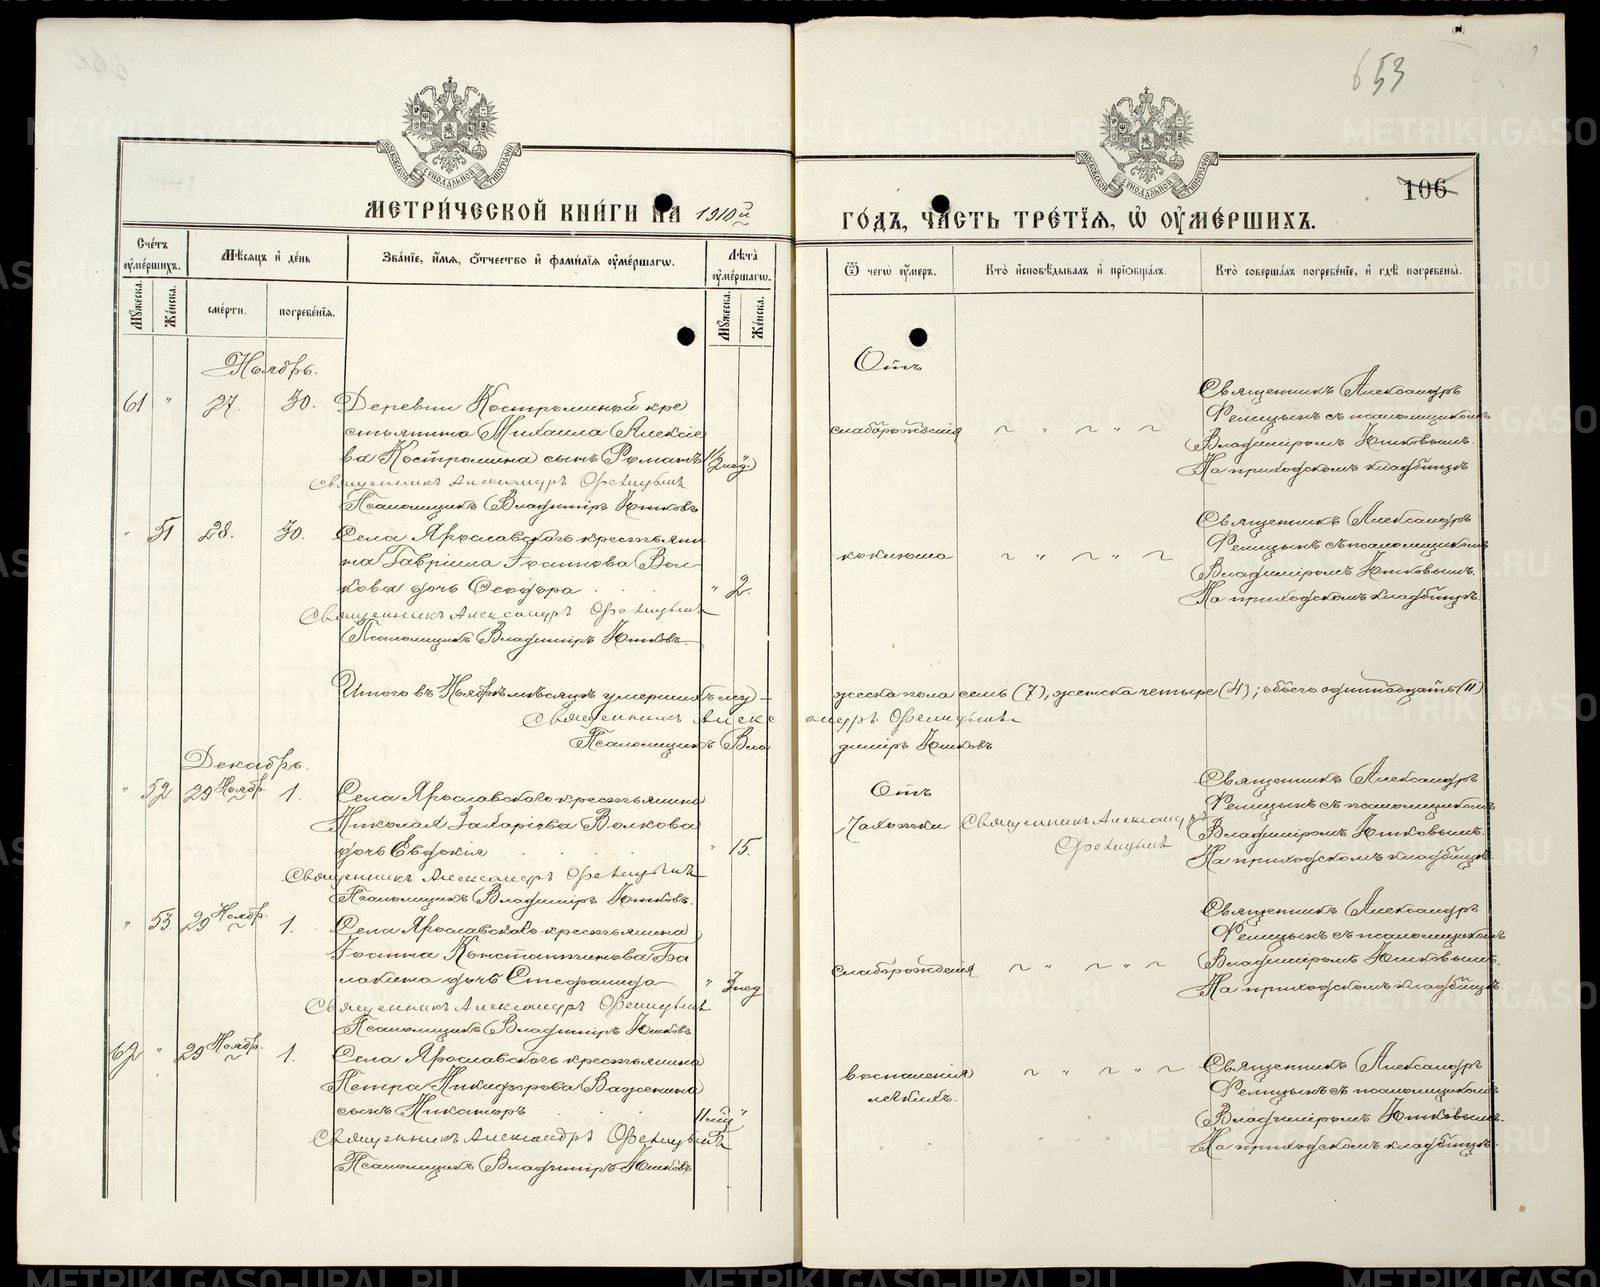 653
106
МОСКОВСКОЙ СИНОДАЛЬНОЙ ТИПОГРАФІИ
МОСКОВСКОЙ СИНОДАЛЬНОЙ ТИПОГРАФІИ
МЕТРИ́ЧЕСКОЙ КНИ́ГИ НА 1910й
ГО́ДЪ, ЧА́СТЬ ТРЕ́ТІѦ, Ѡ҆ ОУ҆МЕ́РШИХЪ.
Сче́тъ оу҆ме́ршихъ.
Му́жеска.
Же́нска.
Мѣ́сяцъ и҆ де́нь
сме́рти.
погребе́нїѧ.
Зва́нїе, и҆́мѧ, ѻ҆́тчество и҆ фами́лїѧ оу҆ме́ршагѡ.
Лѣ́та оу҆ме́ршагѡ.
Му́жеска.
Же́нска.
Ѿ чегѡ̀ оу҆́меръ.
Кто̀ и҆сповѣ́дывалъ и҆ прїѡбща́лъ.
Кто̀ соверша́лъ погребе́нїе, и҆ гдѣ̀ погребены̀.
Ноябрь.
Отъ
61 " 27. 30. Деревни Костроминой кре
стьянина Михаила Алексіе
ва Костромина сынъ Романъ 1½ нед.
Священникъ Александръ Фелицынъ
Псаломщикъ Владиміръ Юшковъ
слаборожденія
Священникъ Александръ
Фелицынъ съ псаломщикомъ
Владиміромъ Юшковымъ.
На приходскомъ кладбищѣ
" 51 28. 30. Села Ярославскаго крестьяни
на Гавріила Іоаннова Вол-
кова дочь Ѳеодора " 2.
Священникъ Александръ Фелицынъ
Псаломщикъ Владиміръ Юшковъ
коклюша
Священникъ Александръ
Фелицынъ съ псаломщикомъ
Владиміромъ Юшковымъ.
На приходскомъ кладбищѣ.
Итого въ Ноябрѣ мѣсяцѣ умершихъ му-
жеска пола семь (7), женска четыре (4); обоего одиннадцать (11)
Священникъ Александръ Фелицынъ
Псаломщикъ Владиміръ Юшковъ
Декабрь.
Отъ
" 52 29 Ноябр. 1. Села Ярославскаго крестьянина
Николая Захаріева Волкова
дочь Евдокія " 15.
Священникъ Александръ Фелицынъ
Псаломщикъ Владиміръ Юшковъ.
Чахотки
Священникъ Александръ
Фелицынъ
Священникъ Александръ
Фелицынъ съ псаломщикомъ
Владиміромъ Юшковымъ.
На приходскомъ кладбищѣ
" 53. 29 Ноябр. 1. Села Ярославскаго крестьянина
Іоанна Константинова Ба
лакина дочь Стефанида " 3 нед
Священникъ Александръ Фелицынъ
Псаломщикъ Владиміръ Юшковъ
слаборожденія
Священникъ Александръ
Фелицынъ съ псаломщикомъ
Владиміромъ Юшковымъ.
На приходскомъ кладбищѣ.
62 " 29 Ноябр. 1. Села Ярославскаго крестьянина
Петра Никифорова Важенина
сынъ Никаноръ
Священникъ Александръ Фелицынъ
Псаломщикъ Владиміръ Юшковъ
воспаленія
легкихъ.
Священникъ Александръ
Фелицынъ съ псаломщикомъ
Владиміромъ Юшковымъ.
На приходскомъ кладбищѣ.
METRIKI.GASO-URAL.RU